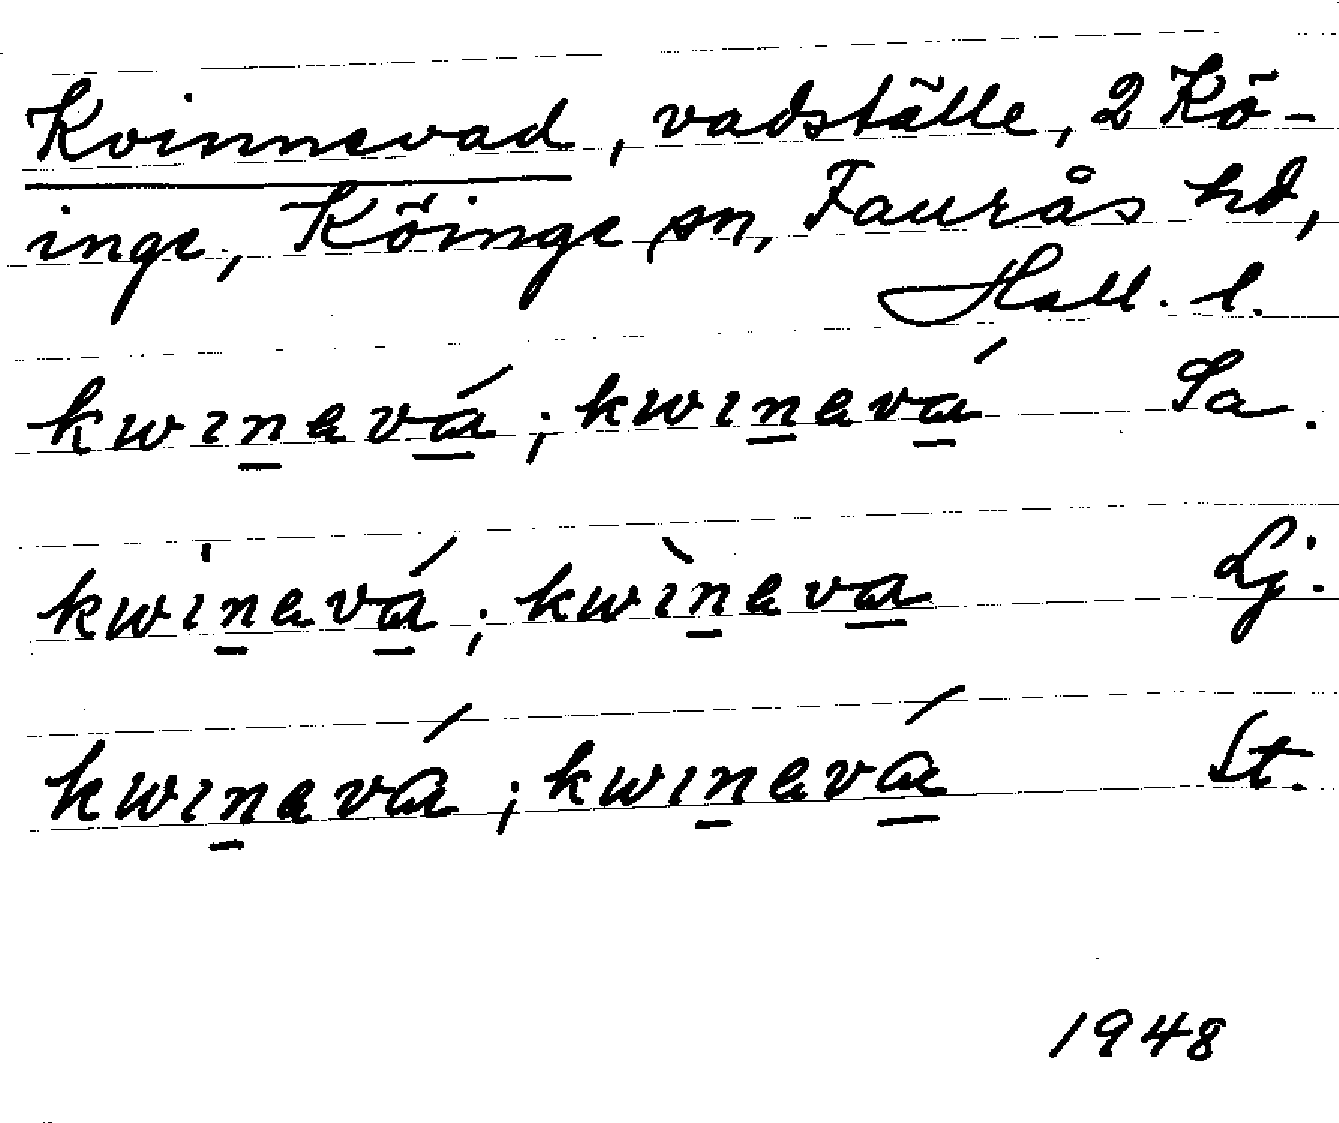 Kvinnevad, vadställe, 2 Kö-
inge, Köinge sn, Faurås hd,
Hall. l.
kwınevá; kwınevá Sa.
kwı̍nevá; kwìneva Lj.
kwınevá; kwınevá St.
1948